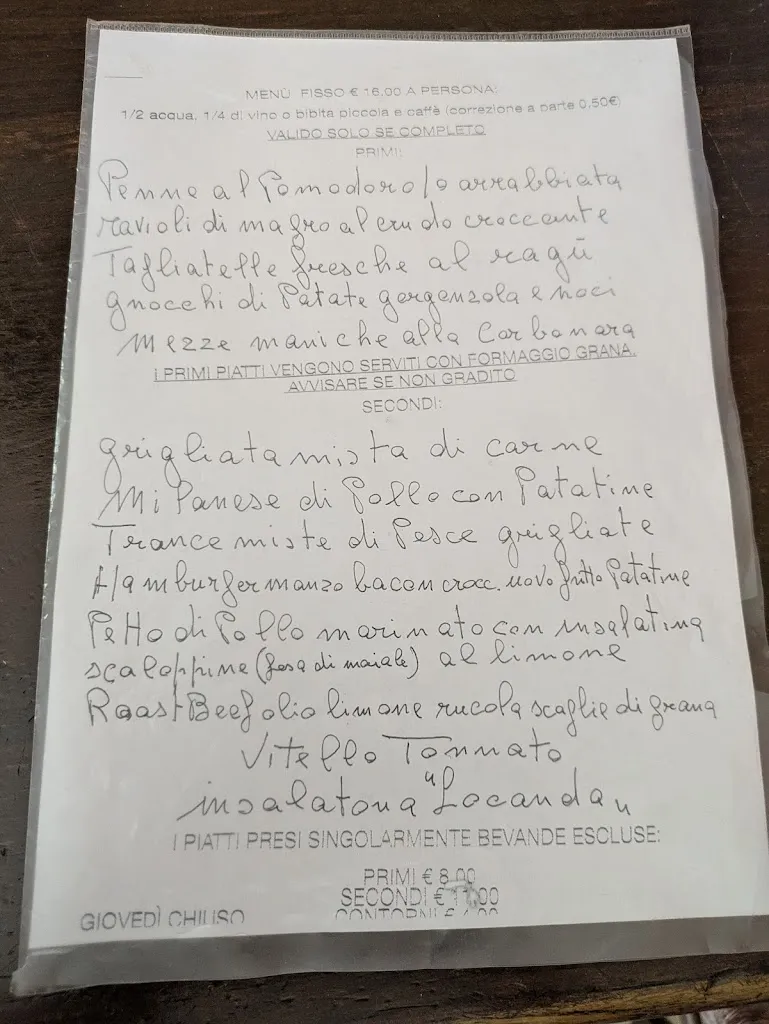 MENÙ FISSO € 16,00 A PERSONA:
1/2 acqua, 1/4 di vino o bibita piccola e caffè (correzione a parte 0,50€)
VALIDO SOLO SE COMPLETO
PRIMI:
Penne al Pomodoro/o arrabbiata
ravioli di magro al crudo croccante
Tagliatelle fresche al ragù
gnocchi di Patate gorgonzola e noci
Mezze maniche alla Carbonara
I PRIMI PIATTI VENGONO SERVITI CON FORMAGGIO GRANA.
AVVISARE SE NON GRADITO
SECONDI:
grigliata mista di carne
Milanese di Pollo con Patatine
Trance miste di Pesce grigliate
Hamburger manzo bacon crocc. uovo fritto Patatine
Petto di Pollo marinato con insalatina
scaloppine (fesa di maiale) al limone
Roast Beef olio limone rucola scaglie di grana
Vitello Tonnato
insalatona "Locanda"
I PIATTI PRESI SINGOLARMENTE BEVANDE ESCLUSE:
PRIMI € 8,00
SECONDI € 11,00
CONTORNI €
GIOVEDÌ CHIUSO